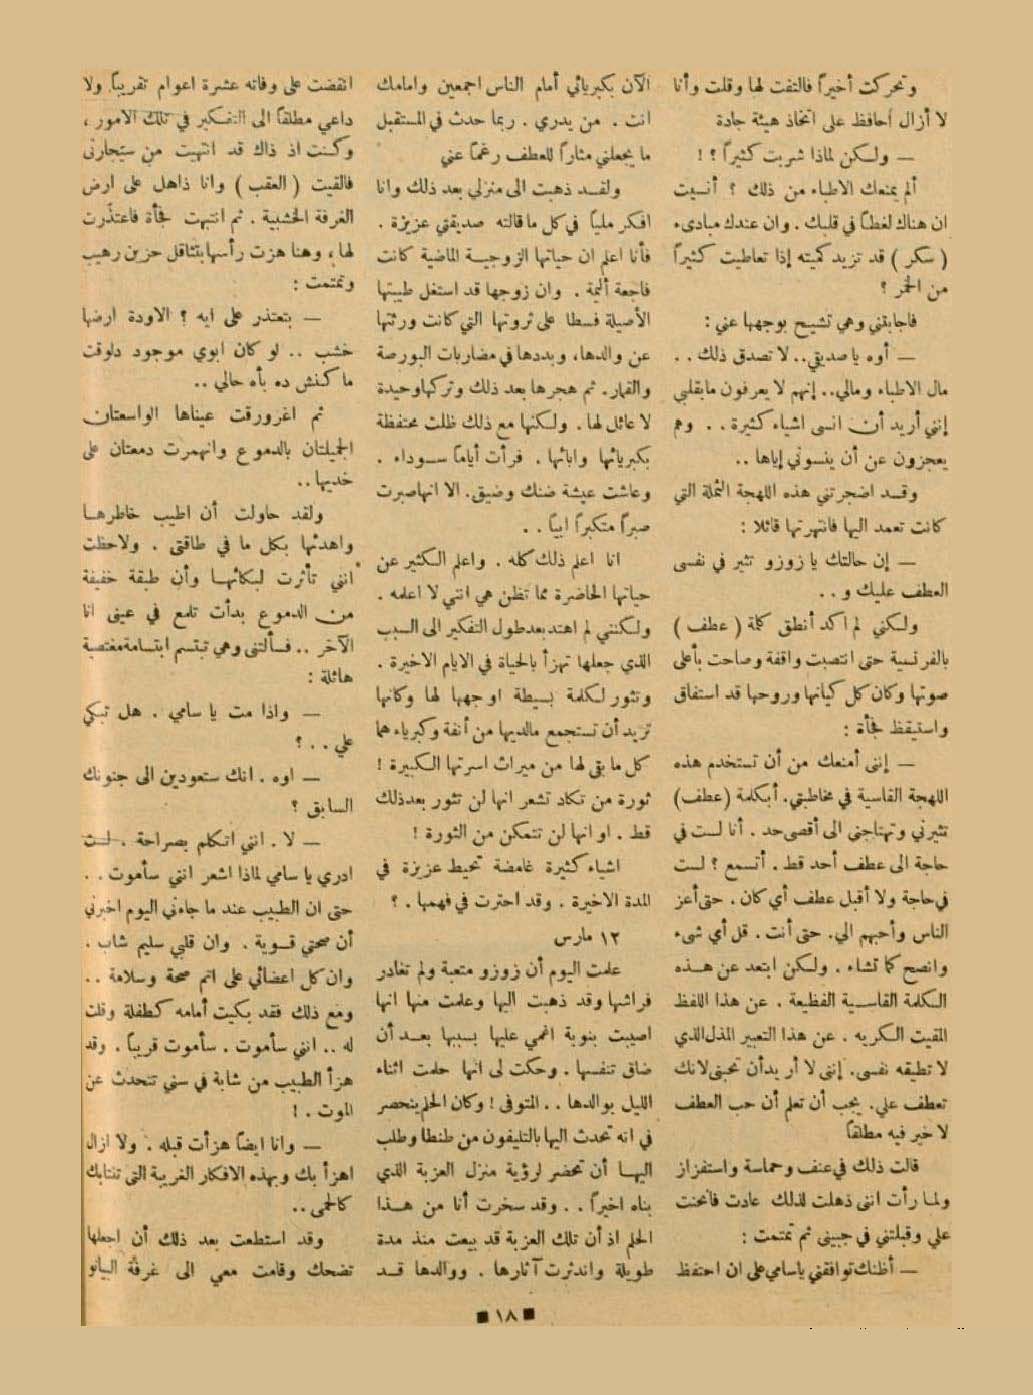 وتحركت أخيراً فالتفت لها وقلت وأنا
لا أزال أحافظ على اتخاذ هيئة جادة
— ولكن لماذا شربت كثيراً ؟ !
ألم يمنعك الاطباء من ذلك ؟ أنسيت
ان هناك لغطاً في قلبك . وان عندك مبادىء
( سكر ) قد تزيد كميته إذا تعاطيت كثيراً
من الخمر ؟
فاجابتني وهي تشيح بوجهها عني :
— أوه يا صديقي .. لا تصدق ذلك . .
مال الاطباء ومالي .. إنهم لا يعرفون ما بقلبي
إنني أريد أن أنسى اشياء كثيرة . . وهم
يعجزون عن أن ينسوني إياها ..
وقد اضجرتني هذه اللهجة الثملة التي
كانت تعمد اليها فانتهرتها قائلا :
— إن حالتك يا زوزو تثير في نفسى
العطف عليك و . .
ولكني لم اكد أنطق كلمة ( عطف )
بالفرنسية حتى انتصبت واقفة وصاحت بأعلى
صوتها وكان كل كيانها وروحها قد استفاق
واستيقظ فجأة :
— إننى أمنعك من أن تستخدم هذه
اللهجة القاسية في مخاطبتي . أبكلمة (عطف)
تثيرني وتهتاجنى الى أقصى حد . أنا لست في
حاجة الى عطف أحد قط . أتسمع ؟ لست
في حاجة ولا أقبل عطف أي كان . حتى أعز
الناس وأحبهم الي . حتى أنت . قل أي شىء
وانصح كما تشاء . ولكن ابتعد عن هذه
الكلمة القاسية الفظيعة . عن هذا اللفظ
المقيت الكريه . عن هذا التعبير المذل الذي
لا تطيقه نفسى . إننى لا أريد أن تحبنى لانك
تعطف علي . يجب أن تعلم أن حب العطف
لا خير فيه مطلقاً
قالت ذلك في عنف وحماسة واستفزاز
ولما رأت انى ذهلت لذلك عادت فانحنت
علي وقبلتني في جبينى ثم تمتمت :
— أظنك توافقني يا سامي على ان احتفظ
الآن بكبريائي أمام الناس اجمعين وامامك
انت . من يدري . ربما حدث في المستقبل
ما يجعلني مثاراً للعطف رغماً عني
ولقد ذهبت الى منزلي بعد ذلك وانا
افكر ملياً في كل ما قالته صديقتي عزيزة .
فأنا اعلم ان حياتها الزوجية الماضية كانت
فاجعة أليمة . وان زوجها قد استغل طيبتها
الأصيلة فسطا على ثروتها التي كانت ورثتها
عن والدها ، وبددها في مضاربات البورصة
والقمار . ثم هجرها بعد ذلك وتركها وحيدة
لا عائل لها . ولكنها مع ذلك ظلت محتفظة
بكبريائها وابائها . فرأت أياماً سوداء .
وعاشت عيشة ضنك وضيق . الا انها صبرت
صبراً متكبراً ابياً . .
انا اعلم ذلك كله . واعلم الكثير عن
حياتها الحاضرة مما تظن هي انني لا اعلمه .
ولكنني لم اهتد بعد طول التفكير الى السبب
الذي جعلها تهزأ بالحياة في الايام الاخيرة .
وتثور لكلمة بسيطة اوجهها لها وكانها
تريد أن تستجمع ما لديها من أنفة وكبرياء هما
كل ما بقى لها من ميراث اسرتها الكبيرة !
ثورة من تكاد تشعر انها لن تثور بعد ذلك
قط . او انها لن تتمكن من الثورة !
اشياء كثيرة غامضة تحيط عزيزة في
المدة الاخيرة . وقد احترت في فهمها . ؟
١٢ مارس
علمت اليوم أن زوزو متعبة ولم تغادر
فراشها وقد ذهبت اليها وعلمت منها انها
اصيبت بنوبة اغمي عليها بسببها بعد أن
ضاق تنفسها . وحكت لى انها حلمت اثناء
الليل بوالدها . . المتوفى ! وكان الحلم ينحصر
في انه تحدث اليها بالتليفون من طنطا وطلب
اليها أن تحضر لرؤية منزل العزبة الذي
بناه اخيراً . . وقد سخرت أنا من هذا
الحلم اذ أن تلك العزبة قد بيعت منذ مدة
طويلة واندثرت آثارها . ووالدها قد
انقضت على وفاته عشرة اعوام تقريباً ولا
داعي مطلقاً الى التفكير في تلك الامور ،
وكنت اذ ذاك قد انتهيت من سيجارتى
فالقيت ( العقب ) وانا ذاهل على ارض
الغرفة الخشبية . ثم انتبهت فجأة فاعتذرت
لها ، وهنا هزت رأسها بتثاقل حزين رهيب
وتمتمت :
— بتعتذر على ايه ؟ الاودة ارضها
خشب .. لو كان ابوي موجود دلوقت
ما كنش ده بأه حالي ..
ثم اغرورقت عيناها الواسعتان
الجميلتان بالدموع وانهمرت دمعتان على
خديها ..
ولقد حاولت أن اطيب خاطرها
واهدئها بكل ما في طاقتى . ولاحظت
انني تأثرت لبكائها وأن طبقة خفيفة
من الدموع بدأت تلمع في عينى انا
الآخر .. فسألتنى وهي تبتسم ابتسامة مغتصبة
هائلة :
— واذا مت يا سامي . هل تبكي
علي . . ؟
— اوه . انك ستعودين الى جنونك
السابق ؟
— لا . انني اتكلم بصراحة . لست
ادري يا سامي لماذا اشعر انني سأموت . .
حتى ان الطبيب عند ما جاءني اليوم اخبرني
أن صحتي قوية . وان قلبي سليم شاب .
وان كل اعضائي على اتم صحة وسلامة ..
ومع ذلك فقد بكيت أمامه كطفلة وقلت
له .. انني سأموت . سأموت قريباً . وقد
هزأ الطبيب من شابة في سني تتحدث عن
الموت . !
— وانا ايضاً هزأت قبله . ولا ازال
اهزأ بك وبهذه الافكار الغريبة التى تنتابك
كالحمى ..
وقد استطعت بعد ذلك أن اجعلها
تضحك وقامت معي الى غرفة البيانو
■ ١٨ ■